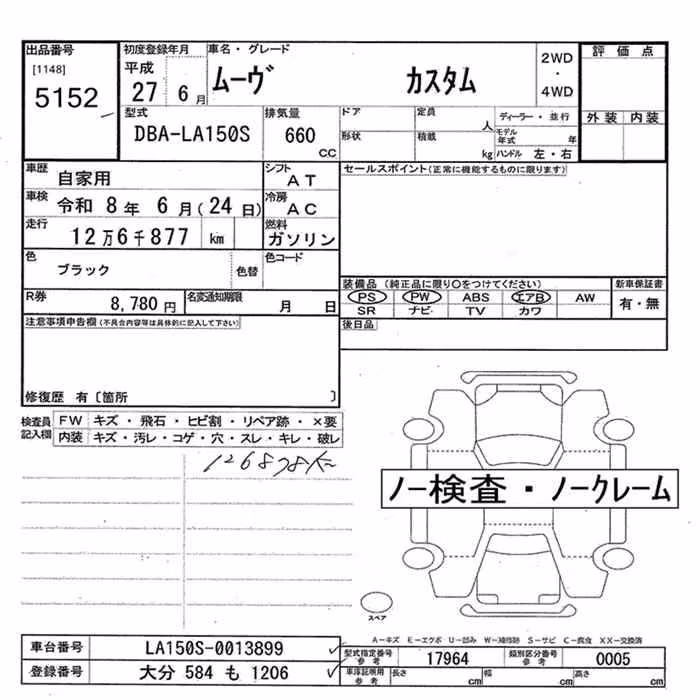 出品番号
[1148]
5152
初度登録年月
平成
27 6月
車名・グレード
ムーヴ カスタム
2WD
・
4WD
評価点
外装 内装
型式
DBA-LA150S
排気量
660
CC
ドア
定員
人
ディーラー・並行
形状
積載
kg
モデル年式
年
ハンドル 左・右
車歴
自家用
シフト
AT
セールスポイント(正常に機能するものに限ります)
車検
令和 8年 6月(24日)
冷房
AC
走行
12万6千877 km
燃料
ガソリン
色
ブラック
色替
色コード
装備品 (純正品に限り○をつけてください)
新車保証書
PS PW ABS エアB AW
有・無
SR ナビ TV カワ
R券
8,780円
名変通知期限
月 日
後日品
注意事項申告欄(不具合内容等は具体的に記入して下さい)
修復歴 有〔箇所 〕
検査員記入欄
FW キズ・飛石・ヒビ割・リペア跡・×要
内装 キズ・汚レ・コゲ・穴・スレ・キレ・破レ
126878km
ノー検査・ノークレーム
スペア
A-キズ E-エクボ U-凹み W-補修跡 S-サビ C-腐食 XX-交換済
車台番号
LA150S-0013899
型式指定番号
参考
17964
類別区分番号
参考
0005
登録番号
大分 584 も 1206
車庫証明用
参考
長さ
cm
幅
cm
高さ
cm